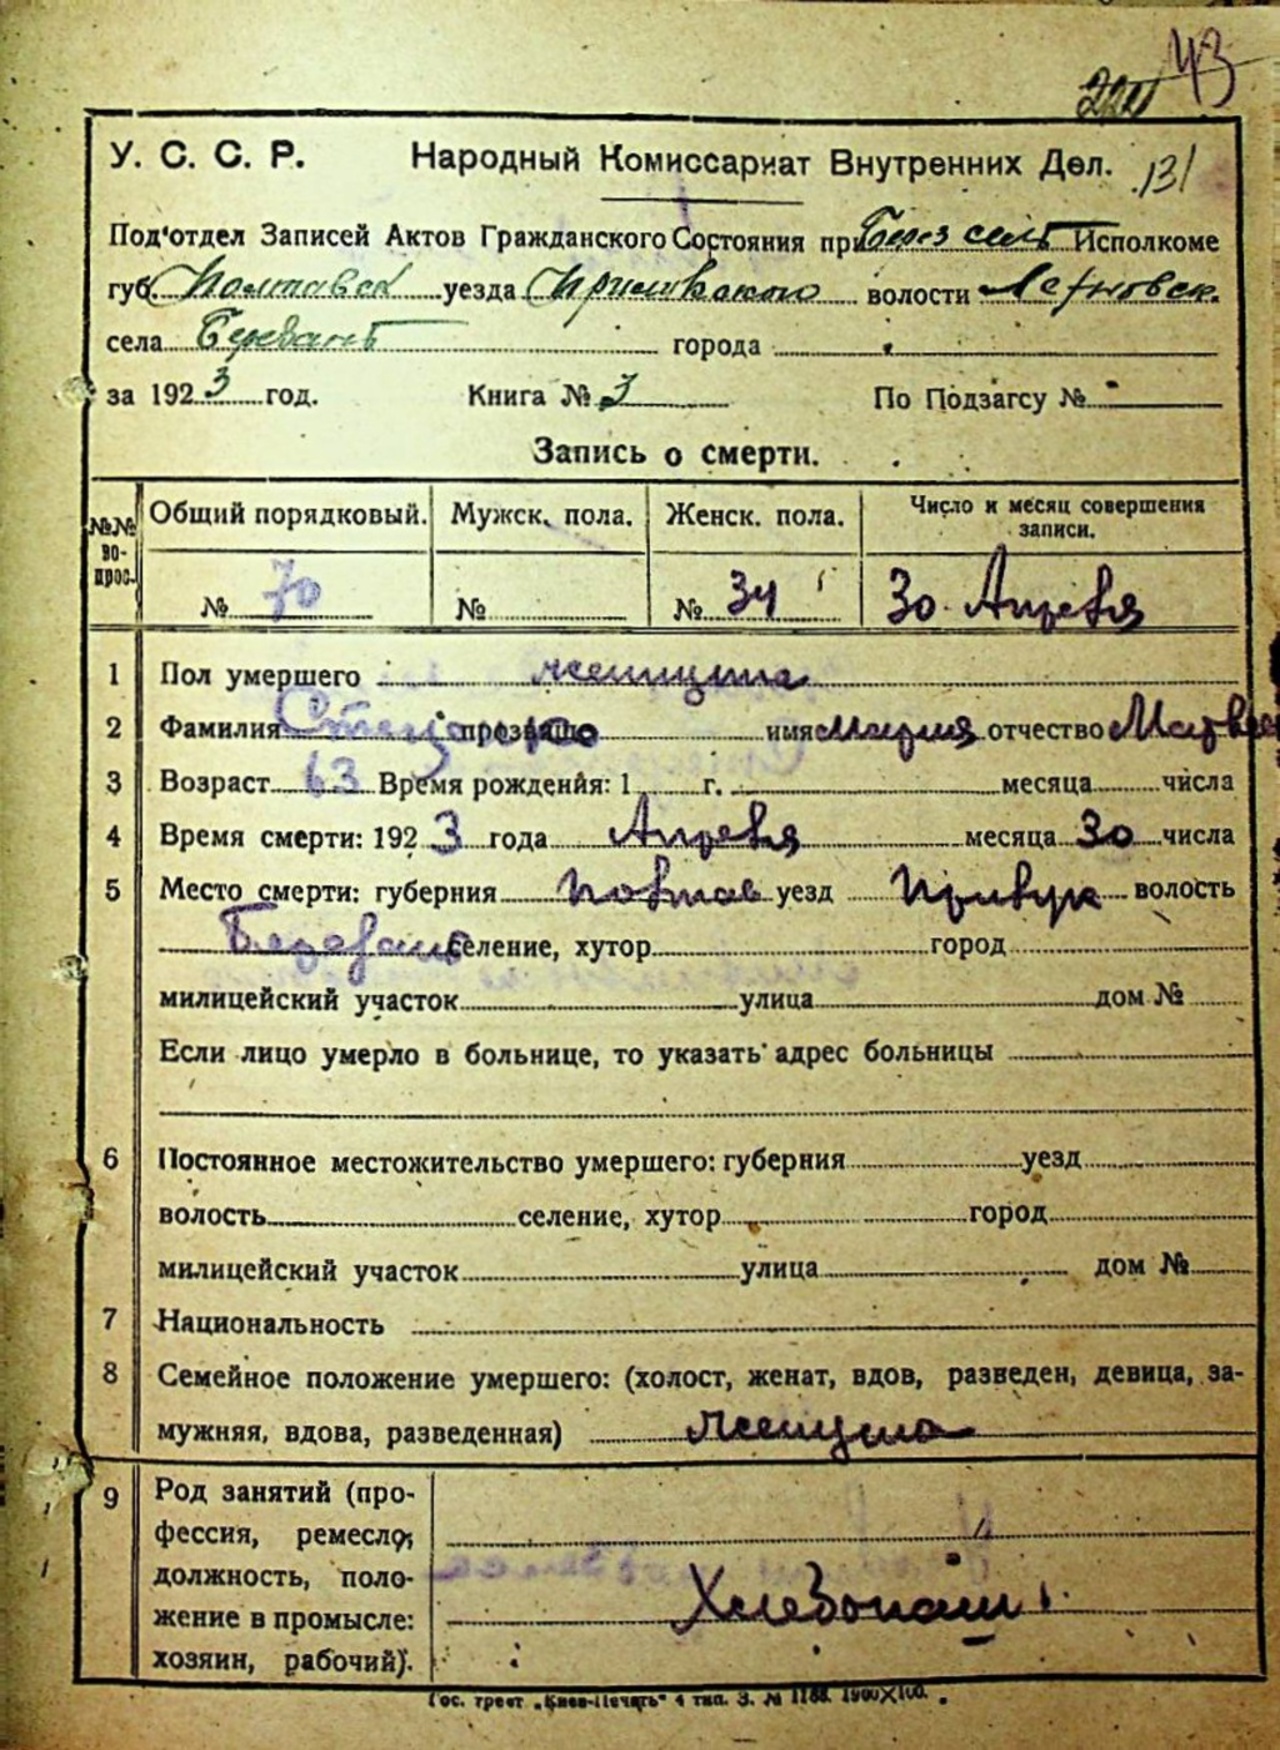 43
131
У. С. С. Р. Народный Комиссариат Внутренних Дел.
Под'отдел Записей Актов Гражданского Состояния при Берез сель Исполкоме
губ. Полтавск уезда Прилукского волости
села города
за 1923 год. Книга № 3 По Подзагсу №
Запись о смерти.
№№ вопрос. Общий порядковый. Мужск. пола. Женск. пола. Число и месяц совершения
записи.
№ 70 № № 34 30 Апреля
1 Пол умершего женщина
2 Фамилия прозвище имя Мария отчество
3 Возраст 63 Время рождения: 1 г. месяца числа
4 Время смерти: 1923 года Апреля месяца 30 числа
5 Место смерти: губерния Полтав уезд Прилук волость
селение, хутор город
милицейский участок улица дом №
Если лицо умерло в больнице, то указать адрес больницы
6 Постоянное местожительство умершего: губерния уезд
волость селение, хутор город
милицейский участок улица дом №
7 Национальность
8 Семейное положение умершего: (холост, женат, вдов, разведен, девица, за-
мужняя, вдова, разведенная) женщина
9 Род занятий (про-
фессия, ремесло,
должность, поло-
жение в промысле:
хозяин, рабочий).
Хлебопаш
Гос. трест „Киев-Печать" 4 тип. З. № 1188. 1900×100.